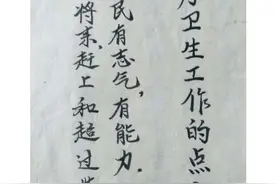 卫生工作的点
民有志气,有能力.
将来,赶上和超过